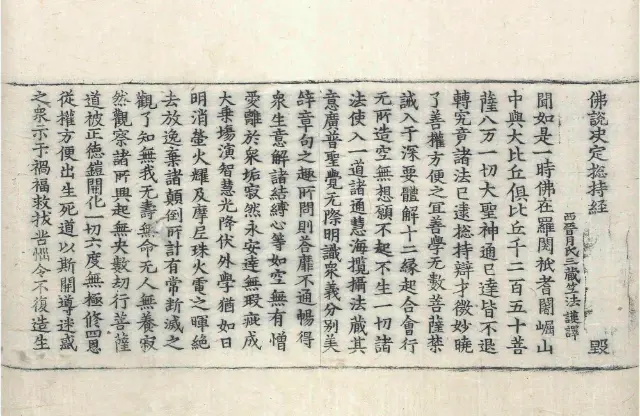 佛說决定捴持經
西晉月氏三藏竺法護譯
毀
聞如是一時佛在羅閱祇耆闍崛山
中與大比丘俱比丘千二百五十菩
薩八万一切大聖神通已達皆不退
轉究竟諸法已逮捴持辯才微妙曉
了善權方便之宜善學无數菩薩禁
誡入于深要體解十二緣起合會行
无所造空無想願不起不生一切諸
法使入一道諸通慧海攬攝法藏其
意廣普聖覺无際明識衆義分別美
辝章句之趣所問則荅靡不通暢得
衆生意解諸結縛心等如空無有憎
愛離於衆垢寂然永安達無瑕疵成
大乗場演智慧光降伏外學猶如日
明消螢火耀及摩尼珠火電之暉絶
去放逸棄諸顛倒所計有常斷滅之
觀了知無我无壽無命无人無養寂
然觀察諸所興起無央數劫行菩薩
道被正德鎧開化一切六度無極修四恩
從權方便出生死道以斯開導迷惑
之衆示于禍福救拔苦惱令不復造生